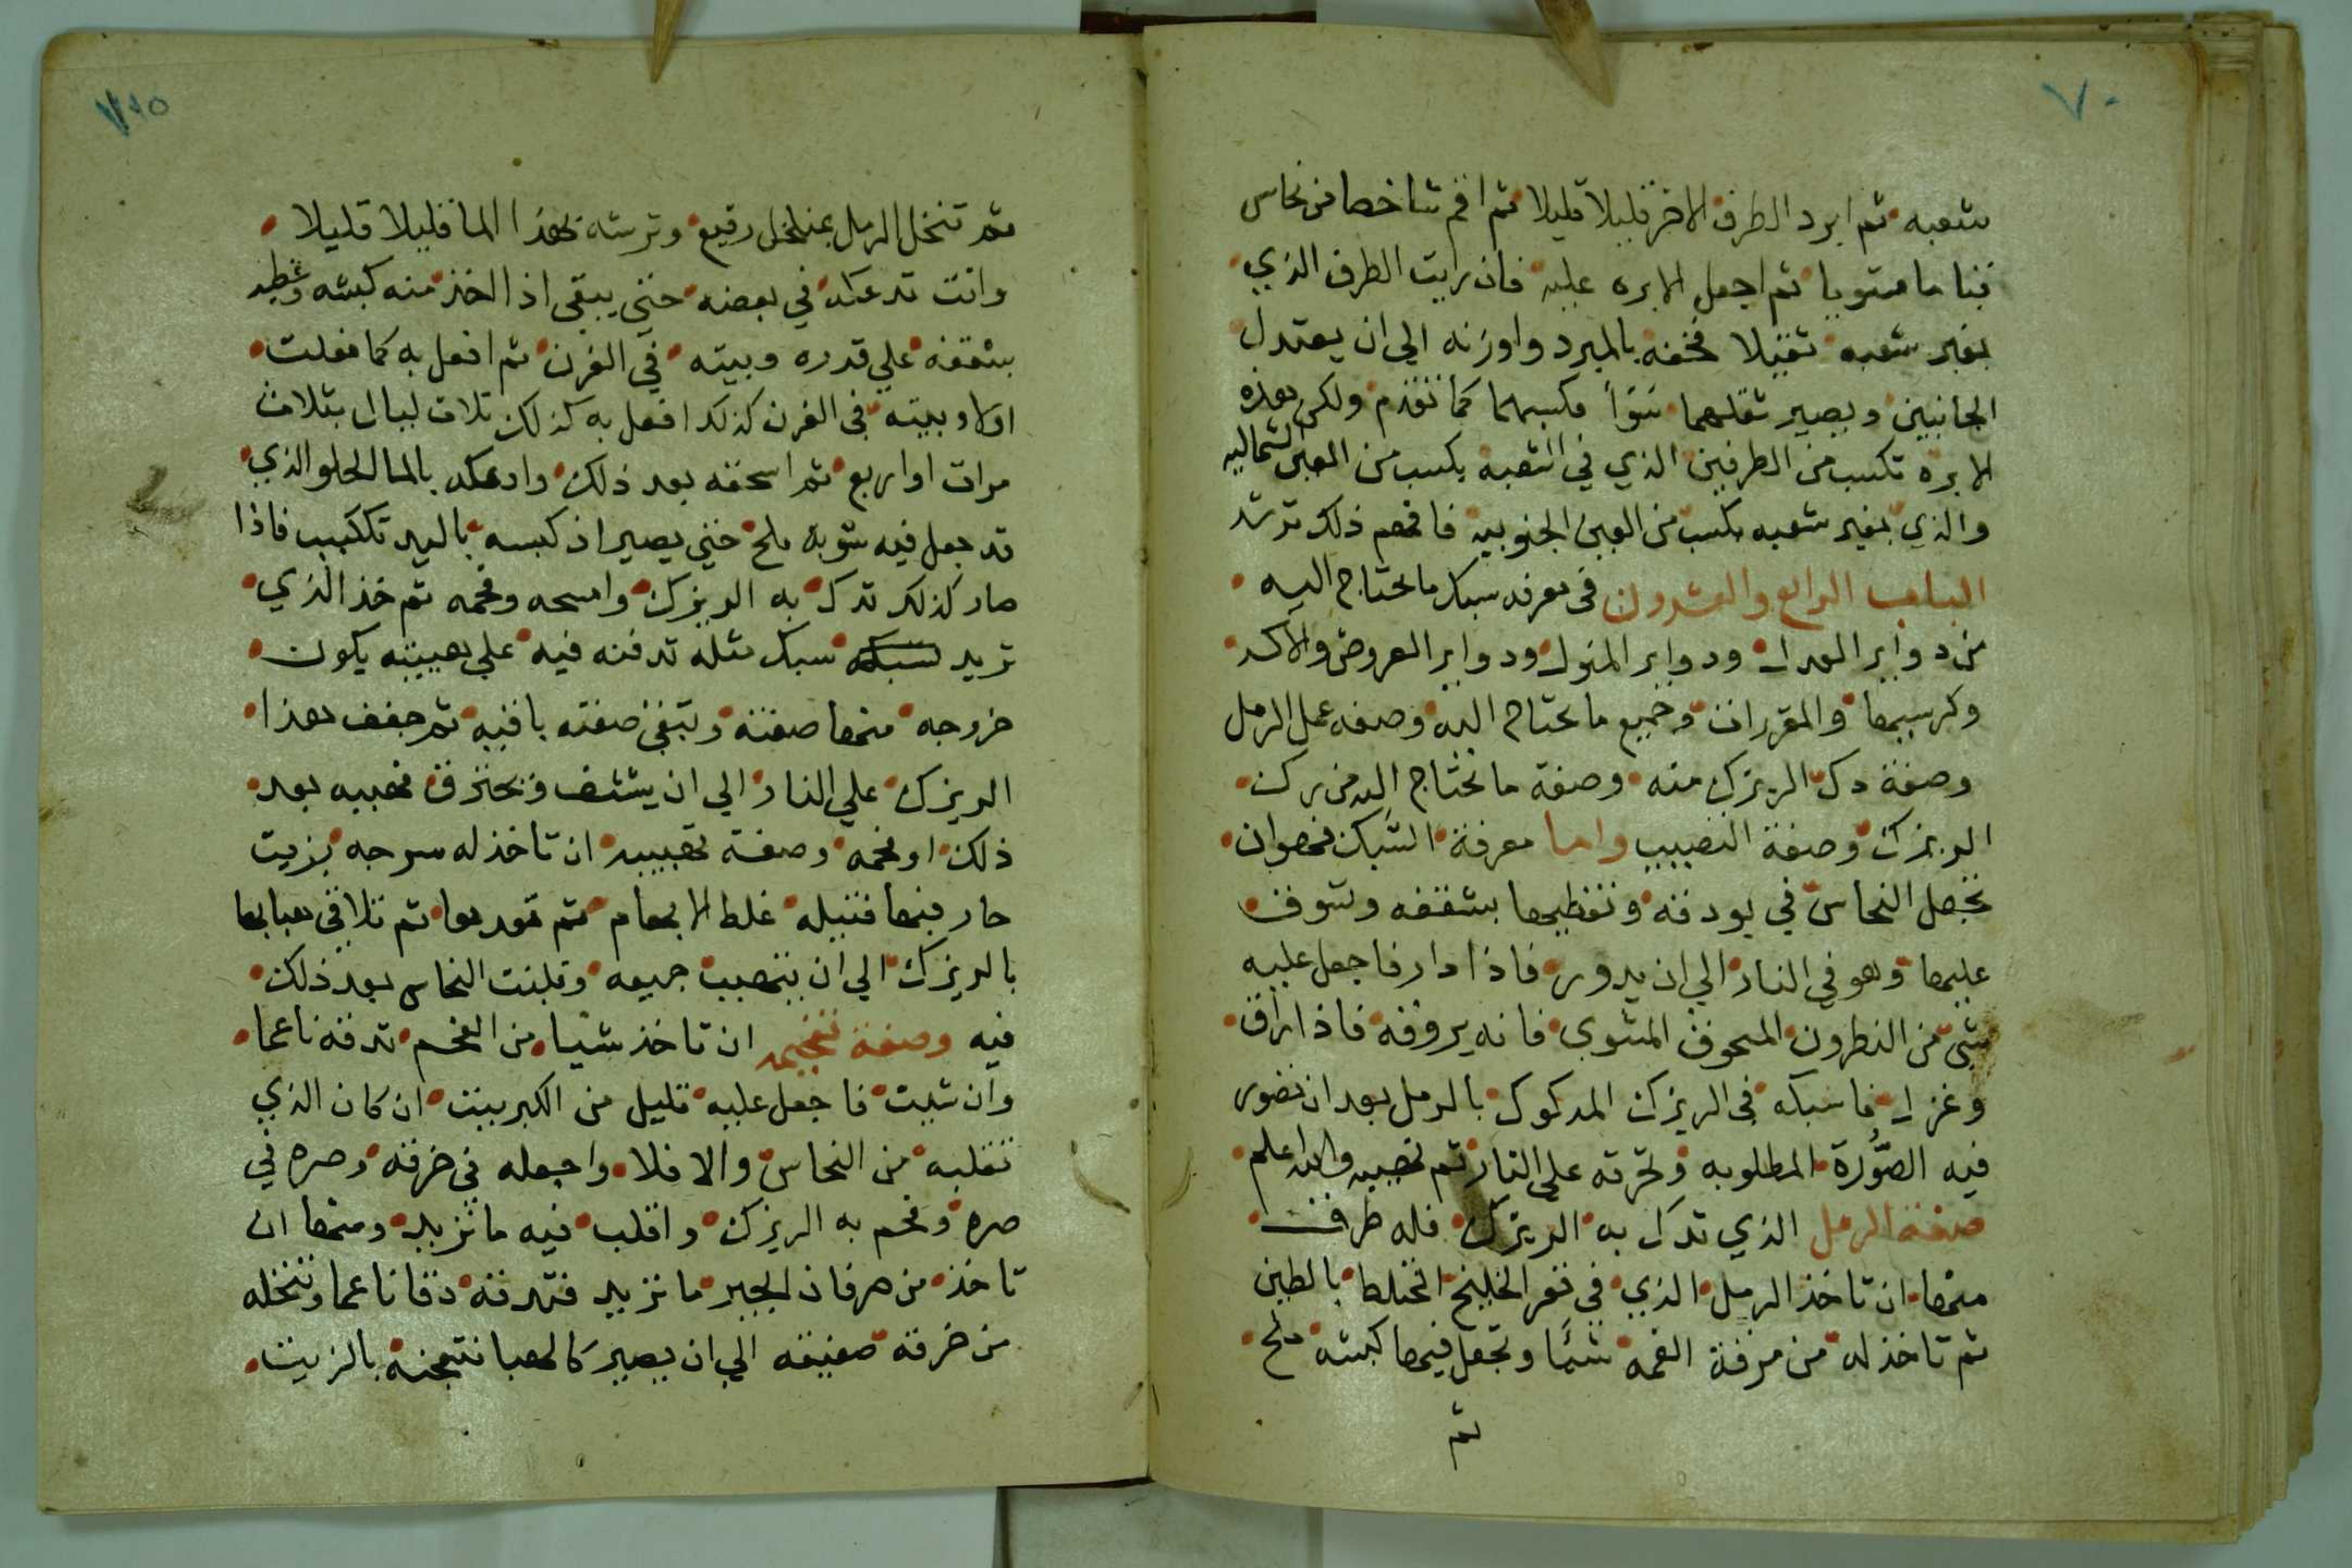 ٧٠
شعبه ثم ابرد الطرف الاخر قليلا قليلا ثم اقم شاخصا من نحاس
ثم اجعل الابره عليه فان رايت الطرف الذي
بغير شعبه ثقيلا فخفه بالمبرد واوزنه الي ان يعتدل
الجانبين ويصير ثقلهما سَوَاً فكسبهما كما تقدم ولكن هذه
الابره تكسب من الطرفين الذي في الشعبه يكسب من العين الشماليه
والذي بغير شعبه يكسب من العين الجنوبيه فافهم ذلك ترشد
الباب الرابع والعشرون في معرفه سبك ما يحتاج اليه
من دواير ودواير ودواير العروض
وكرسيها والمقررات وجميع ما يحتاج اليه وصفه عمل الرمل
وصفة دك الريزك منه وصفة ما يحتاج اليه من
الريزك وصفة واما معرفة السَّبك فهو ان
تجعل النحاس في بودقه وتغطيها بشقفه
عليها وهو في النار الي ان يدور فاذا دار فاجعل عليه
شي من النطرون المسحوق المشوي فانه يروقه فاذا راق
فاسبكه في الريزك المدكوك بالرمل بعد ان تصور
فيه الصُّورة المطلوبه علي النار ثم والله اعلم
صفة الرمل الذي تدك به الريزك فله طرق
منها ان تاخذ الرمل الذي في قعر الخليج المختلط بالطين
ثم تاخذ له من شيًا وتجعل فيها كبشه ملح
ثم
ثم تنخل الرمل بمنخل رفيع وترشه بهذا الما قليلا قليلا
وانت تدعكه في بعضه حتي يبقي اذا اخذ منه كبشه وغطيه
بشقفه علي قدره وبيته في الفرن ثم افعل به كما فعلت
اولا وبيته في الفرن كذلك افعل به كذلك ثلاث ليال بثلاث
مرات او اربع ثم اسحقه بعد ذلك وادعكه بالما الحلو الذي
قد جعل فيه شوية ملح حتي يصير اذ كبسه باليد تكبب فاذا
صار كذلك تدك به الريزك وامسحه وفحمه ثم خذ الذي
تريد سبك مثله تدفنه فيه علي هييته يكون
خروجه منها صفته وتبقي صفته باقيه ثم جفف هذا
الريزك علي النار الي ان ينشف بعد
ذلك او فحمه وصفة ان تاخذ له سرجه بزيت
حار فيها فتيله غلظ الابهام ثم ثم تلاقي هبابها
بالريزك الي ان جميعه وقلبت النحاس بعد ذلك
فيه وصفة تفحيمه ان تاخذ شيا من الفحم تدقه ناعما
وان شيت فاجعل عليه قليل من الكبريت ان كان الذي
تقلبه من النحاس والا فلا واجعله في خرقه وصره في
صره وفحم به الريزك واقلب فيه ما تريد ومنها ان
تاخذ من الجير ما تريد فتدقه دقا ناعما وتنخله
من خرقة صفيقه الي ان يصير كالهبا فتعجنه بالزيت